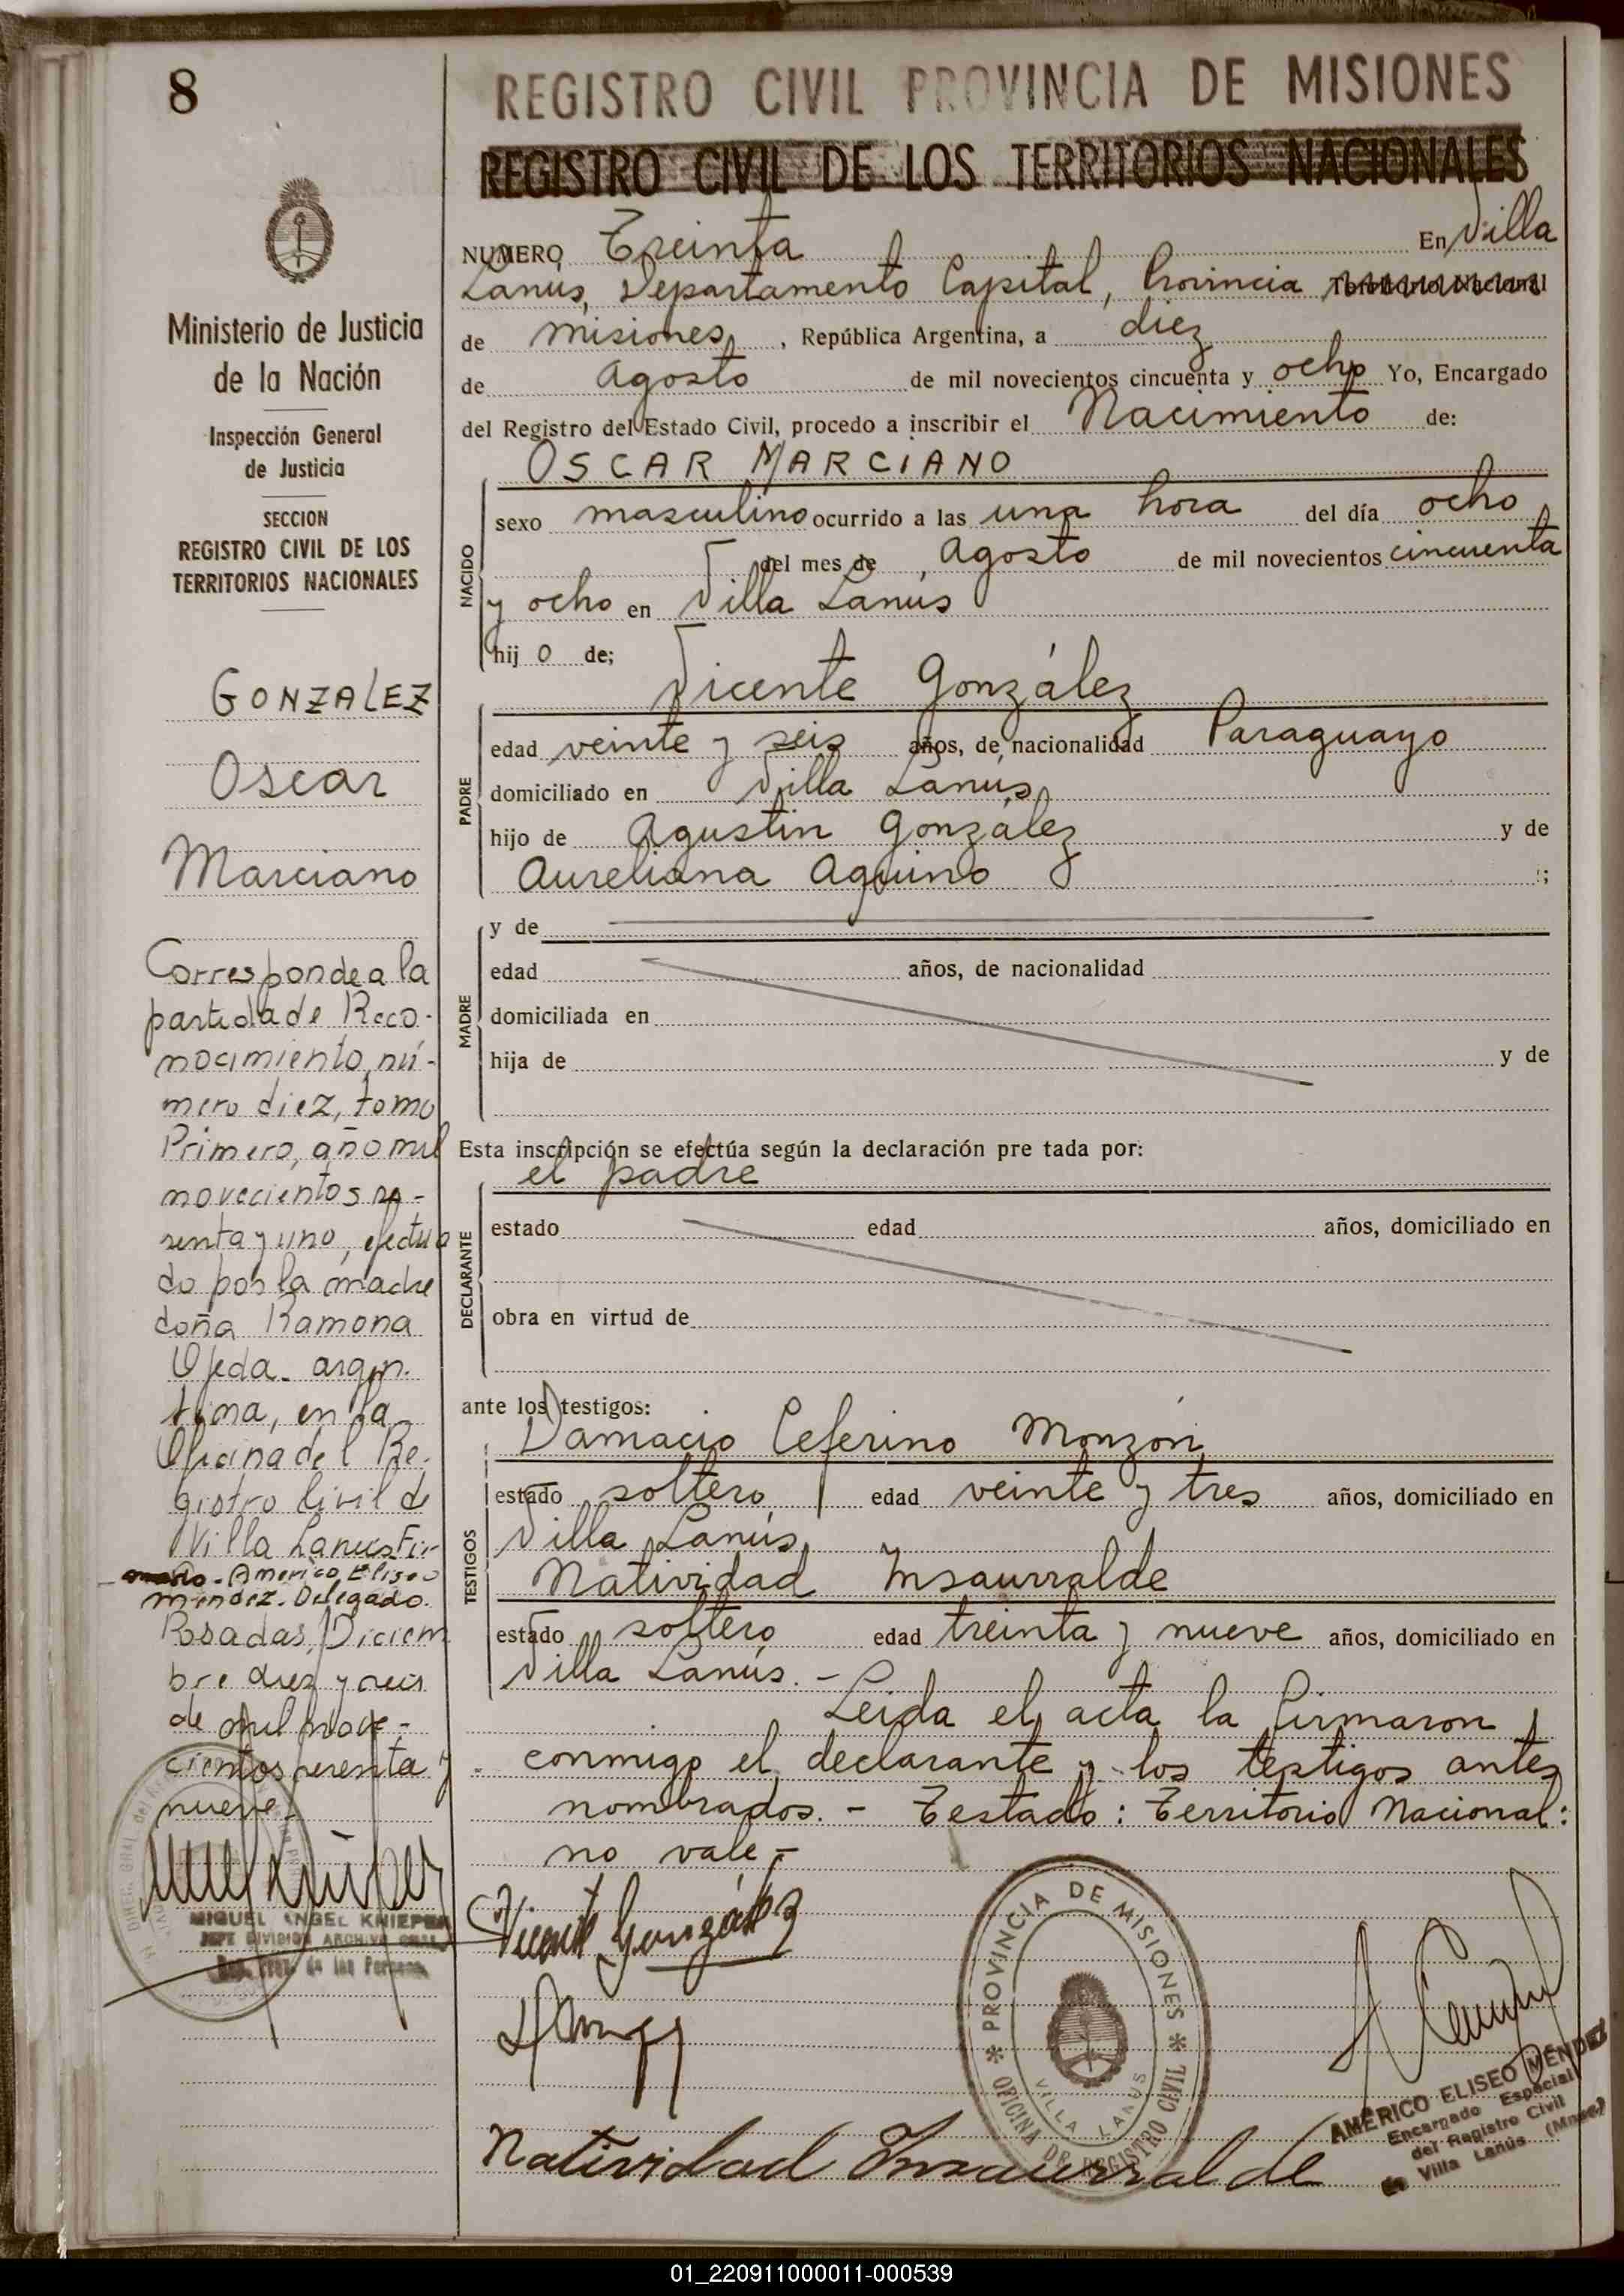 8
REGISTRO CIVIL PROVINCIA DE MISIONES
REGISTRO CIVIL DE LOS TERRITORIOS NACIONALES
Ministerio de Justicia
de la Nación
Inspección General
de Justicia
SECCION
REGISTRO CIVIL DE LOS
TERRITORIOS NACIONALES
GONZALEZ
Oscar
Marciano
Corresponde a la
partida de Reco-
nocimiento, nú-
mero diez, tomo
Primero, año mil
novecientos se-
senta y uno, efectua
do por la madre
doña Ramona
Ojeda - argen-
tina, en la
Oficina del Re-
gistro Civil de
Villa Lanus Fir-
mado - Americo Eliseo
Mendez. Delegado.
Posadas, Diciem
bre diez y seis
de mil nove-
cientos sesenta y
nueve.
MIGUEL ANGEL KNIEPER
JEFE DIVISION ARCHIVO GRAL.
NUMERO Treinta En Villa
Lanús, Departamento Capital, Provincia Territorio Nacional
de Misiones, República Argentina, a diez
de Agosto de mil novecientos cincuenta y ocho Yo, Encargado
del Registro del Estado Civil, procedo a inscribir el Nacimiento de:
OSCAR MARCIANO
NACIDO
sexo masculino ocurrido a las una hora del día ocho
del mes de Agosto de mil novecientos cincuenta
y ocho en Villa Lanús
hij o de;
Vicente González
PADRE
edad veinte y seis años, de nacionalidad Paraguayo
domiciliado en Villa Lanús
hijo de Agustin González y de
Aureliana Aquino ;
MADRE
y de
edad años, de nacionalidad
domiciliada en
hija de y de
Esta inscripción se efectúa según la declaración pre tada por:
el padre
DECLARANTE
estado edad años, domiciliado en
obra en virtud de
ante los testigos:
TESTIGOS
Damacio Ceferino Monzón
estado soltero edad veinte y tres años, domiciliado en
Villa Lanús
Natividad Insaurralde
estado soltero edad treinta y nueve años, domiciliado en
Villa Lanús. -
Leida el acta la firmaron
conmigo el declarante y los testigos antes
nombrados. - Testado: Territorio Nacional:
no vale -
Vicente González
PROVINCIA DE MISIONES
OFICINA DE REGISTRO CIVIL
VILLA LANUS
AMÉRICO ELISEO MÉNDEZ
Encargado Especial
del Registro Civil
de Villa Lanús (Mnes.)
Natividad Insaurralde
01_220911000011-000539